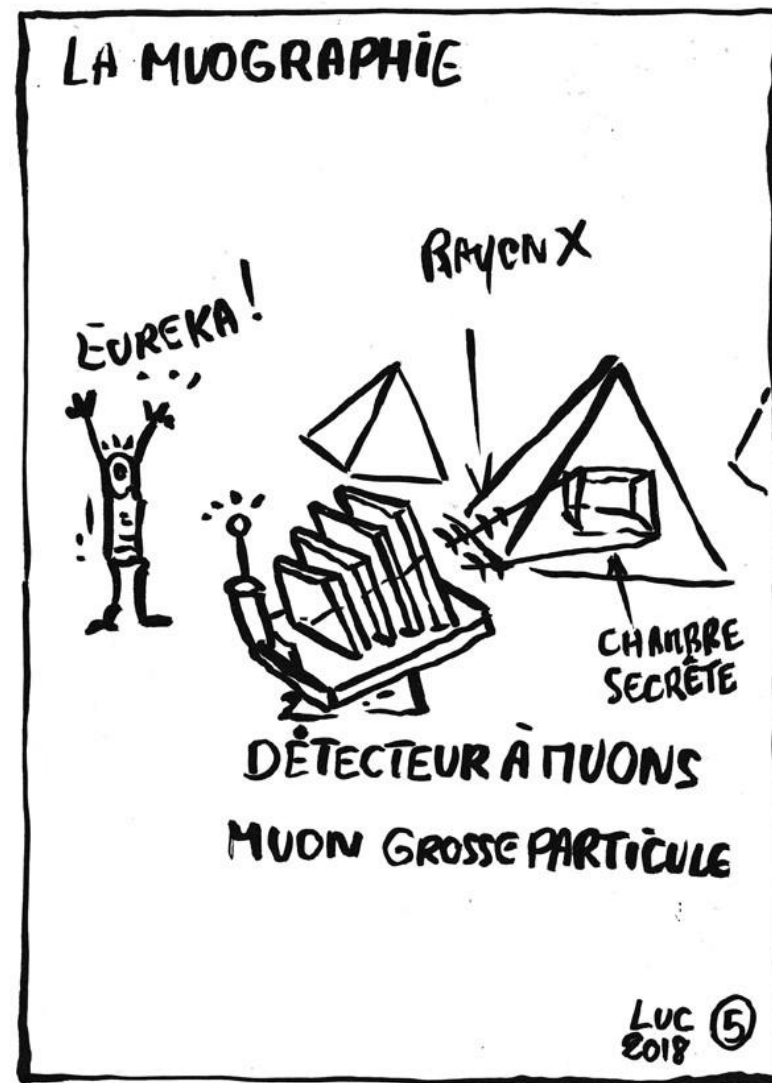 LA MUOGRAPHIE
RAYON X
EUREKA!
CHAMBRE
SECRÊTE
DÉTECTEUR À MUONS
MUON GROSSE PARTICULE
LUC 5
2018